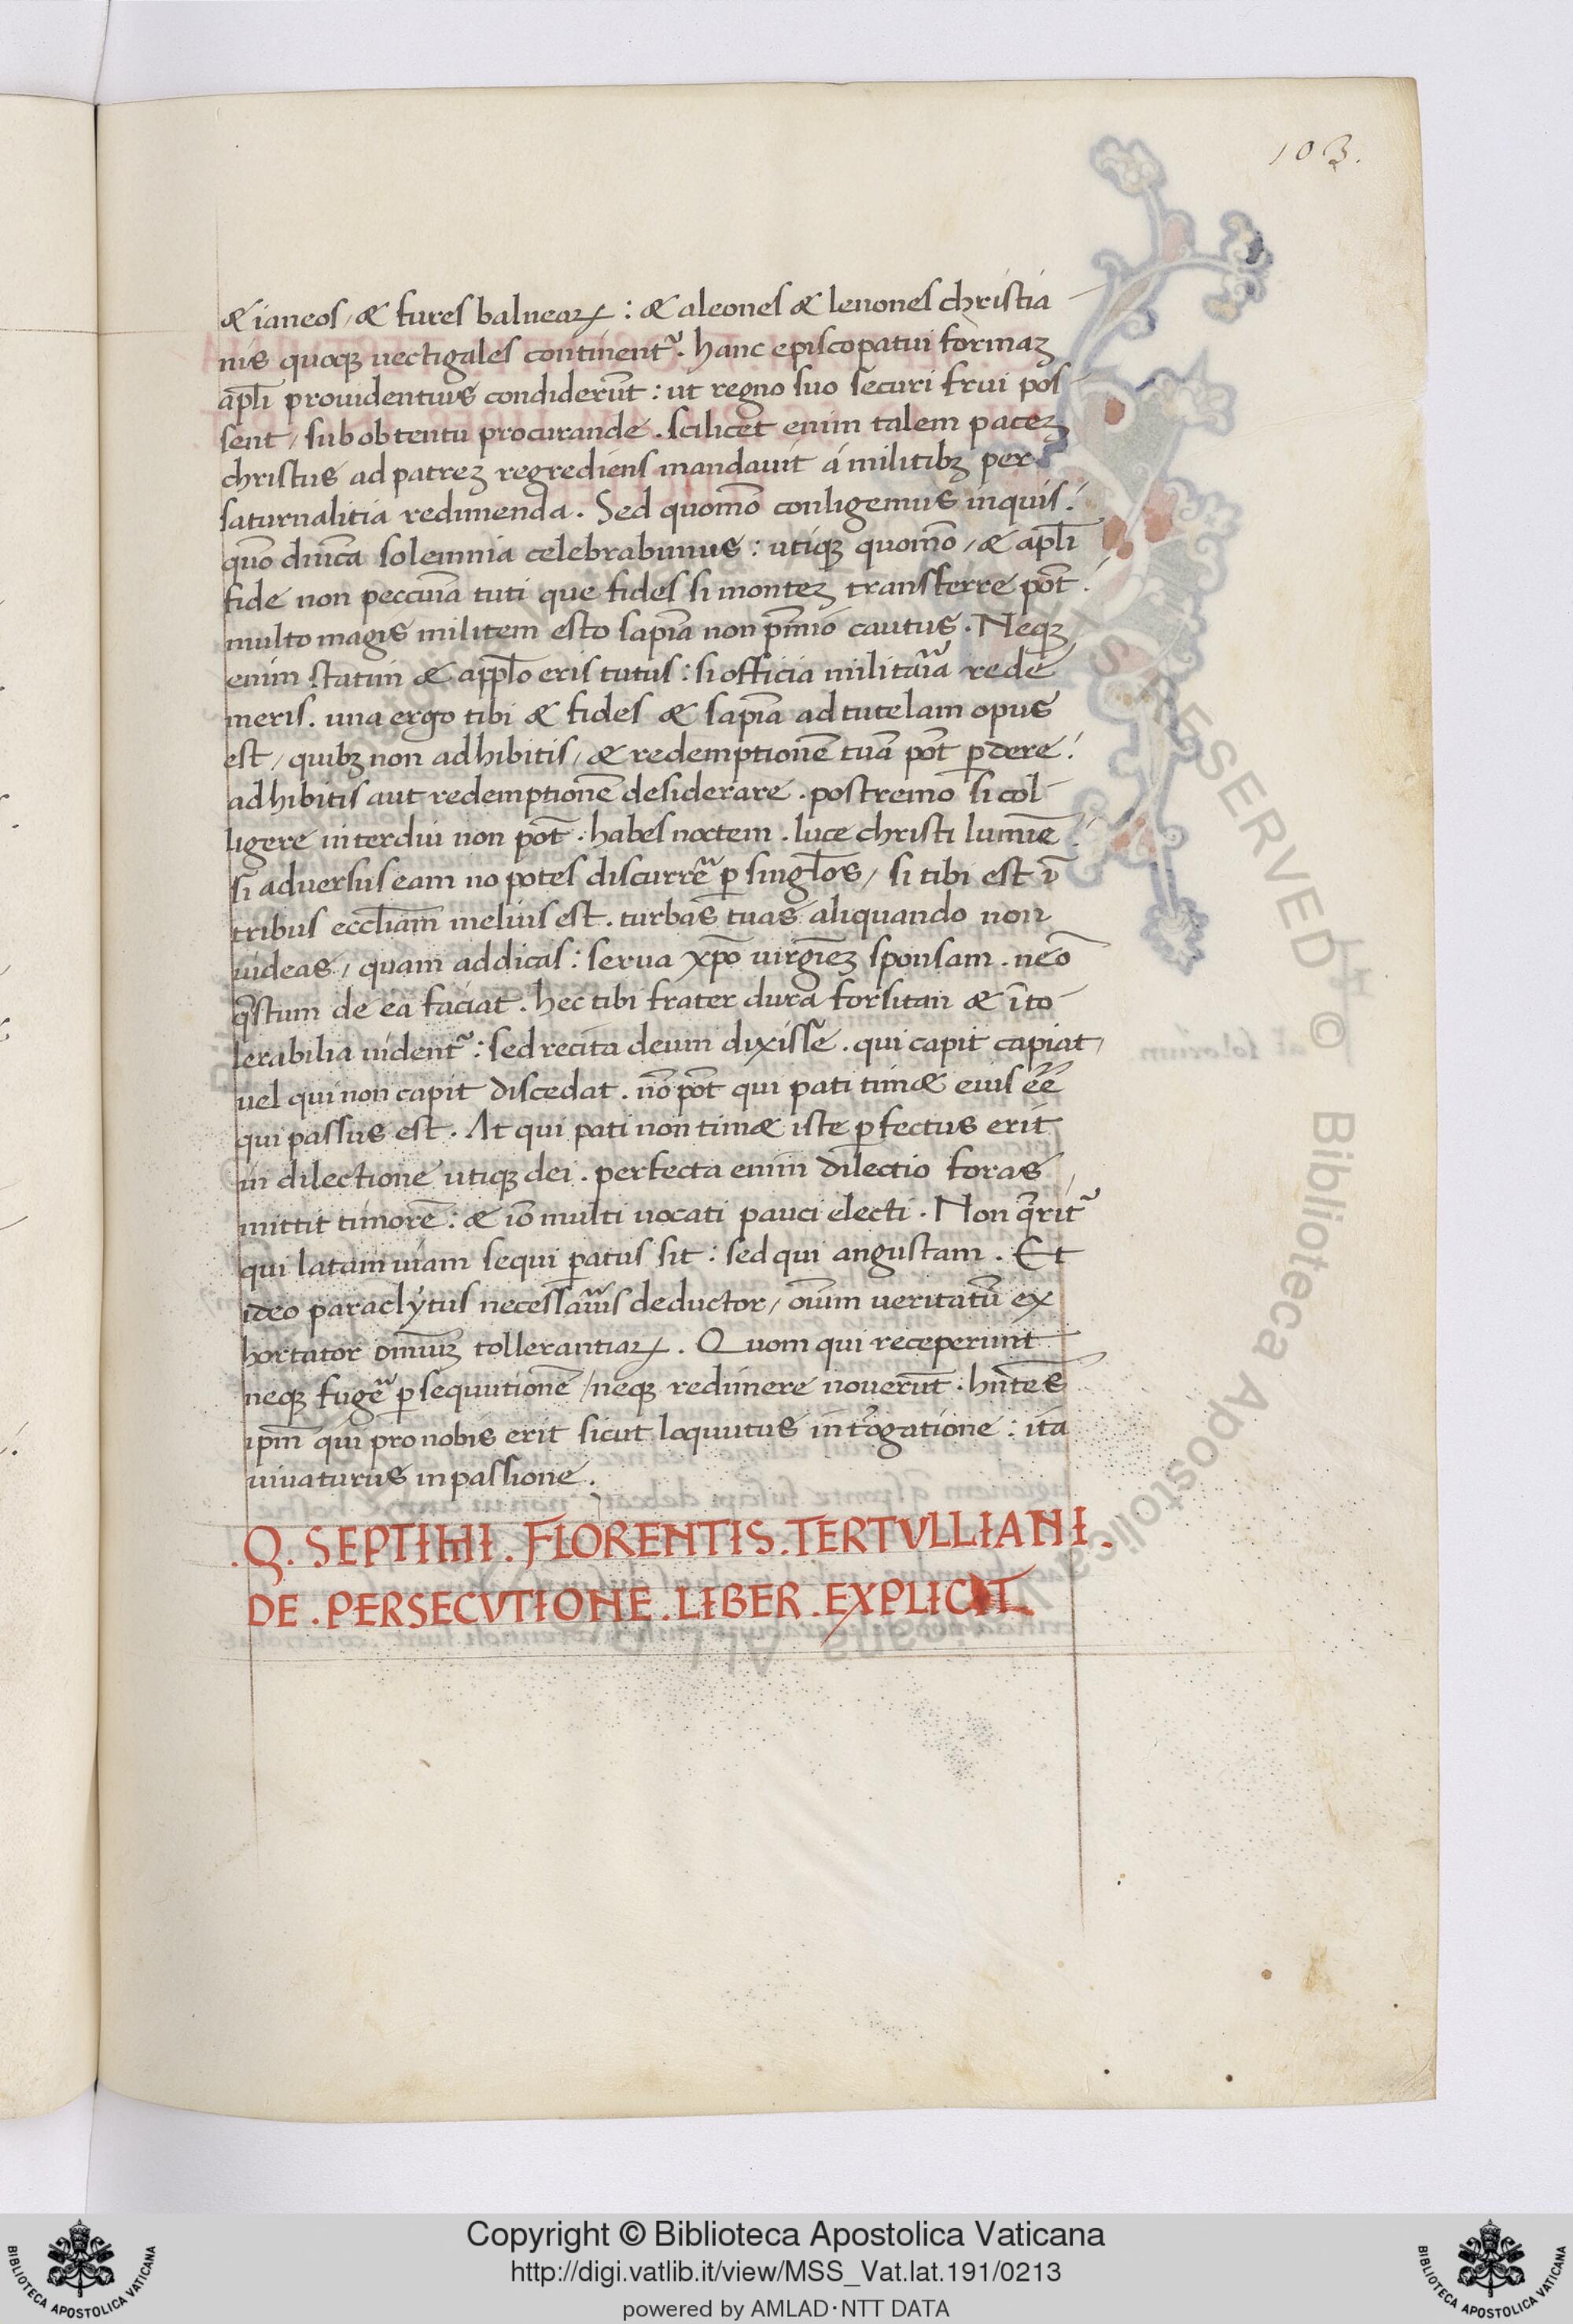 103.
& ianeos / & fures balnearꝝ : & aleones & lenones christia
nis quoqꝫ uectigales continent᷑ . hanc episcopatui formaꝫ
apl̄i prouidentius condiderūt : ut regno suo securi frui pos
sent / sub obtentu procurande . scilicet enim talem paceꝫ
christus ad patreꝫ regrediens mandauit á militibꝫ per
saturnalitia redimenda . Sed quomō conligemus inquis :
quō dn̄ica solemnia celebrabimus : utiqꝫ quomō / & apl̄i
fide non peccunia tuti que fides si monteꝫ transferre pōt :
multo magis militem esto sapīa non p̄mio cautus . Neqꝫ
enim statim & appl̄o eris tutus : si officia militaria rede
meris . una ergo tibi & fides & sapīa ad tutelam opus
est / quibꝫ non adhibitis / & redemptionē tuā pōt ꝑdere :
adhibitis aut redemptionē desiderare . postremo si col
ligere interdiu non pōt . habes noctem . luce christi lumīe :
si aduersus eam no potes discurrere ꝑ singl̄os / si tibi est ī
tribus eccl̄iam melius est . turbas tuas aliquando non
uideas / quam addicas : serua xp̄o uirgīeꝫ sponsam . neō
q̄stum de ea faciat . hec tibi frater dura forsitan & īto
lerabilia uident᷑ : sed recita deum dixissē . qui capit capiat /
uel qui non capit discedat . nō pōt qui pati tim& eius eē
qui passus est . At qui pati non tim& iste ꝑfectus erit
in dilectione utiqꝫ dei . perfecta enim dilectio foras
mittit timorē : & iō multi uocati pauci electi . Non q̄rit᷑
qui latam uiam sequi ꝑatus sit : sed qui angustam . Et
ideo paraclytus necessarius deductor / oīum ueritatū ex
hortator omniuꝫ tollerantiarꝝ . Quom qui receperunt
neqꝫ fugere ꝑsequutionē / neqꝫ redimere nouerūt . hn̄tes
ipm̄ qui pro nobis erit sicut loquutus in īt̄rogatione : ita
uiuaturus in passione .
.Q. SEPTIMI . FLORENTIS . TERTVLLIANI .
DE . PERSECVTIONE . LIBER . EXPLICIT
Copyright © Biblioteca Apostolica Vaticana
http://digi.vatlib.it/view/MSS_Vat.lat.191/0213
powered by AMLAD·NTT DATA
BIBLIOTECA APOSTOLICA VATICANA
BIBLIOTECA APOSTOLICA VATICANA